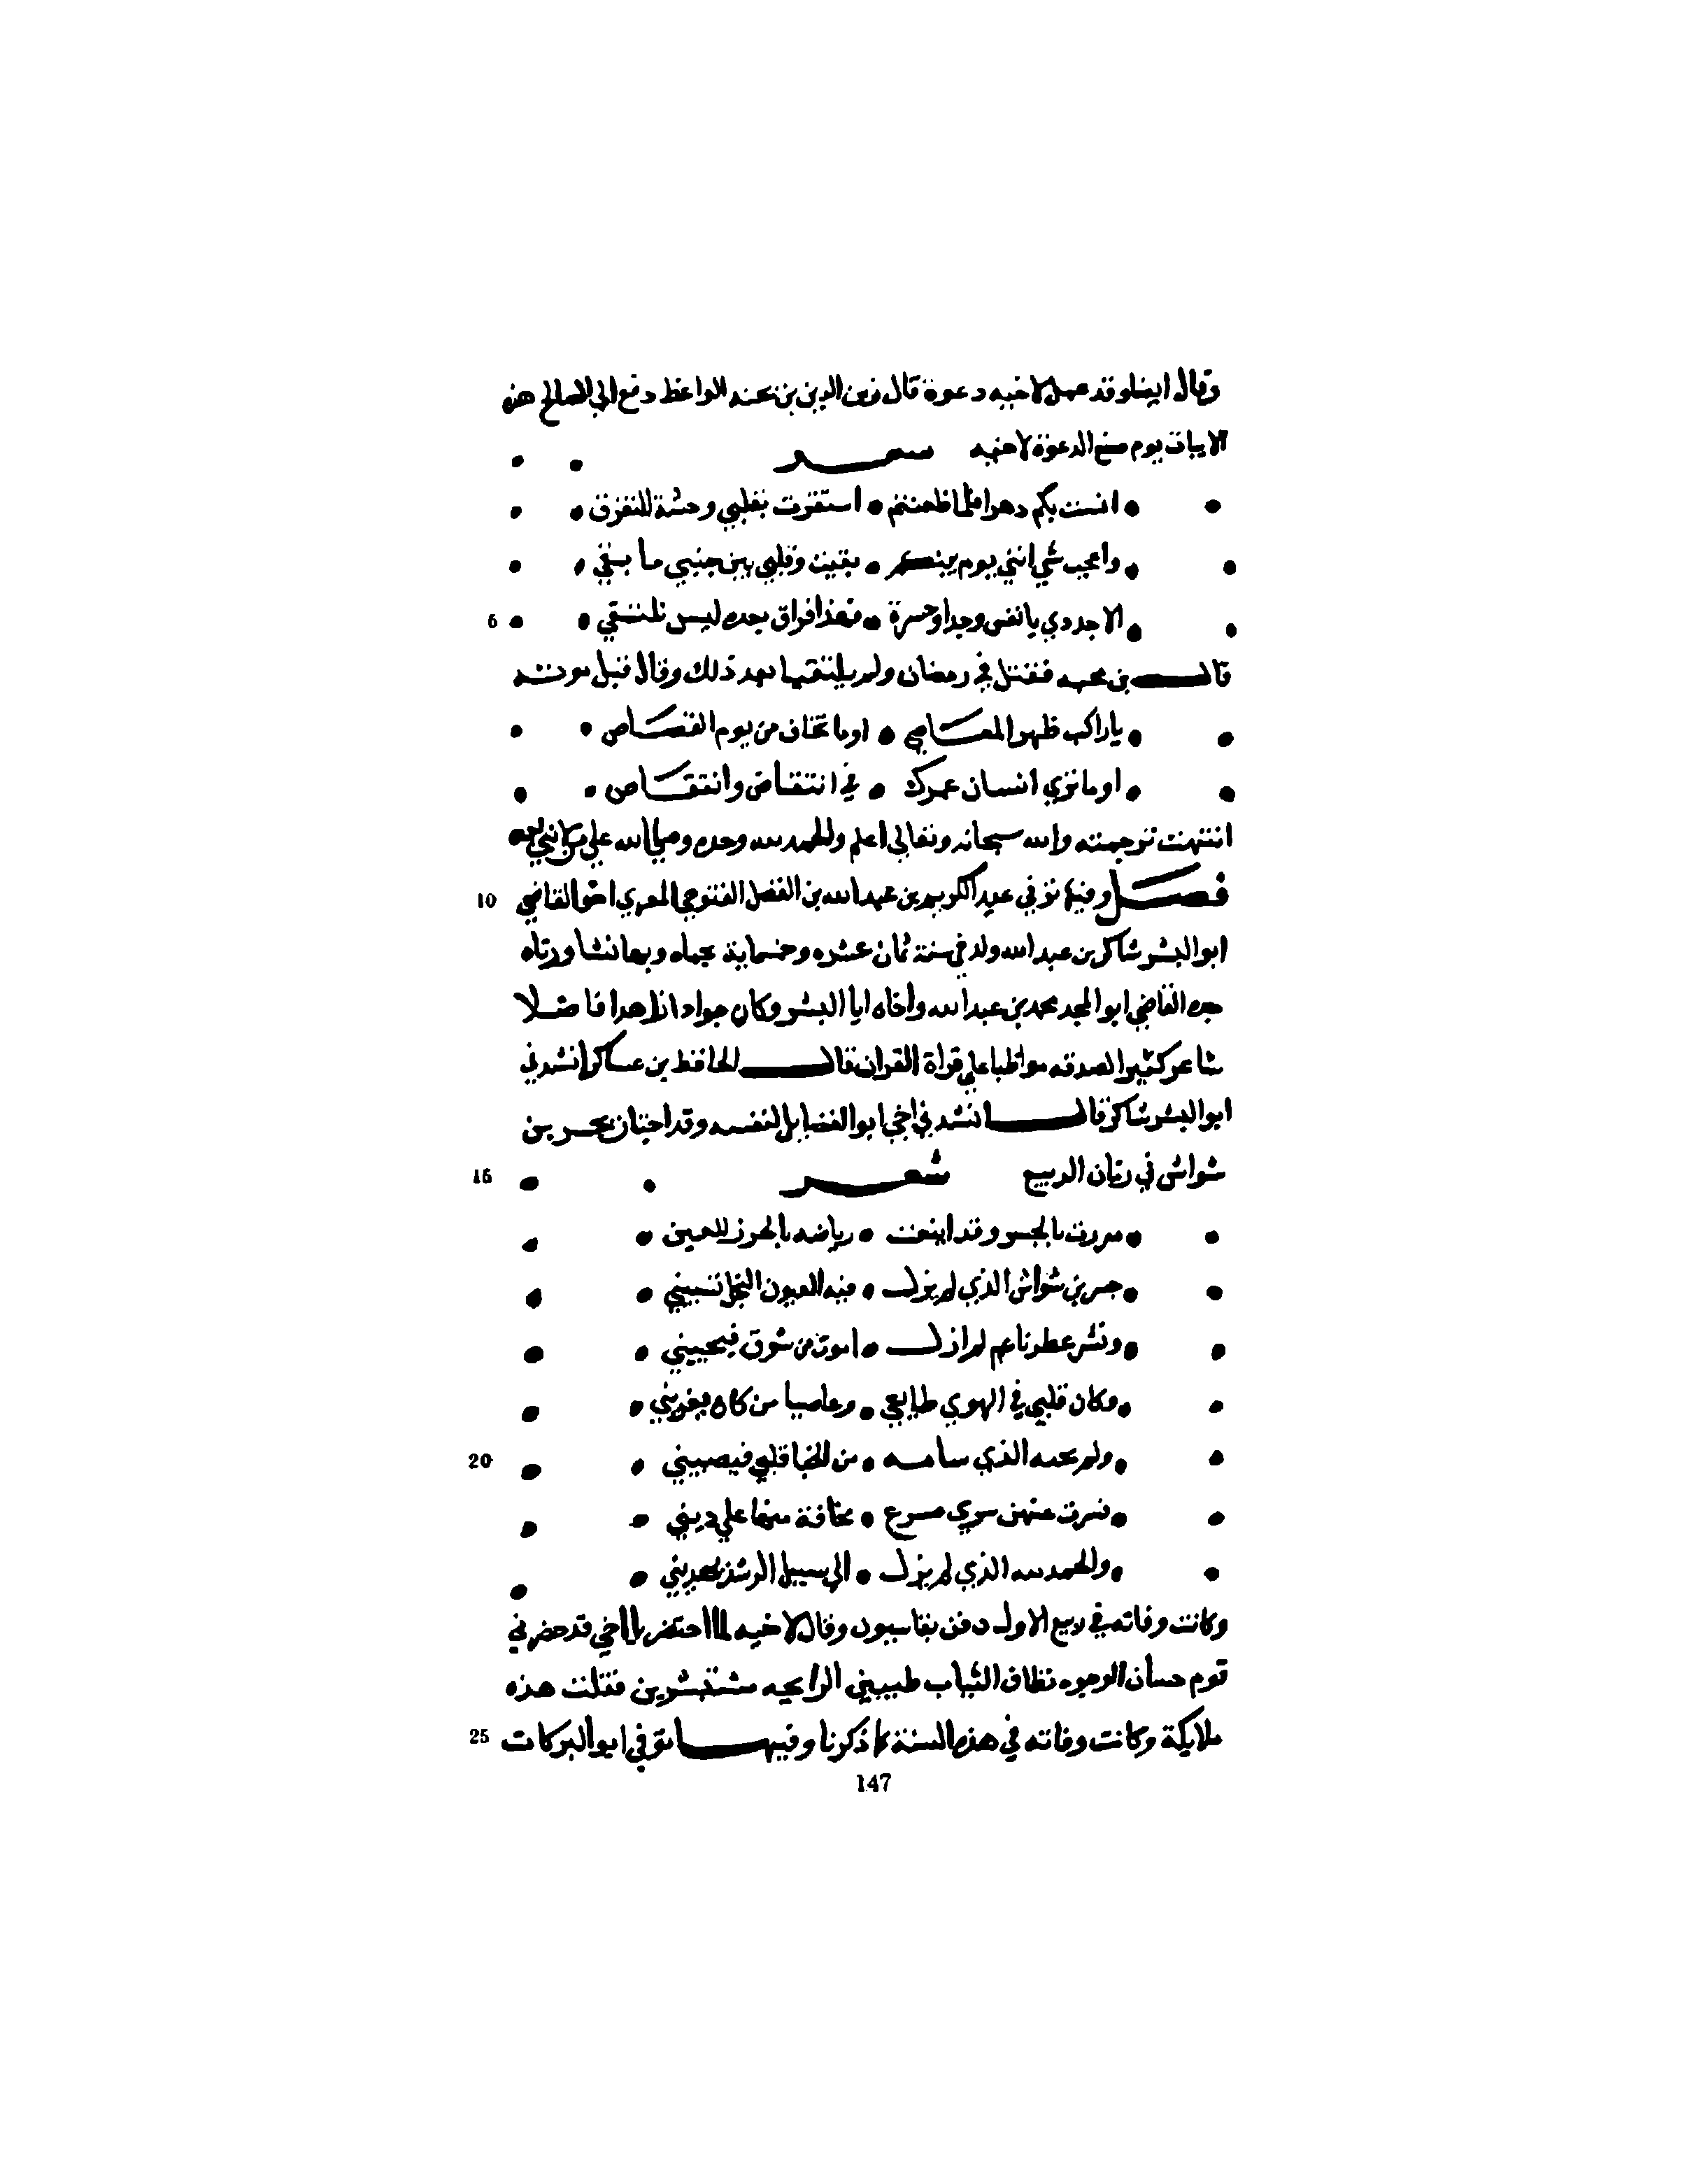 وقال ايضا وقد عمل لاخيه دعوة قال زين الدين بن نجيه الواعظ دفع الي الصالح هذه
الابيات يوم صنع الدعوة لاخيه شعر
انست بكم دهرا فلما ظعنتم • استقرت بقلبي وحشة للتفرق
واعجب شي انني يوم بينكم • بقيت وقلبي بين جنبي ما بقي
5 الا جددي يا نفس وجدا وحسرة • فهذا فراق بعده ليس نلتقي
قال بن نجيه فقتل في رمضان ولم يلتقيا بعد ذلك وقال قبل موته
يا راكب ظهر المعاصي • اوما تخاف من يوم القصاص
اوما تري انسان عمرك • في انتقاض وانتقاص
انتهت ترجمته والله سبحانه وتعالي اعلم والحمد لله وحده وصلي الله علي من لا نبي بعده
10 فصل وفيها توفي عبد الكريم بن عبد الله بن الفضل الفتوحي المعري اخو القاضي
ابو البشر شاكر بن عبد الله ولد في سنة ثمان عشره وخمسماية بحماه وبها نشا ورباه
جده القاضي ابو المجد محمد بن عبد الله واخاه ابا البشر وكان جوادا زاهدا فاضلا
شاعر كثير الصدقه مواظبا علي قراة القران قال الحافظ بن عساكر انشدني
ابو البشر شاكر قال انشدني اخي ابو الفضايل لنفسه وقد اجتاز بجسر بن
15 شواش في زمان الربيع شعر
مررت بالجسر وقد اينعت • رياضه بالحرز للعين
جسر بن شواش الذي لم يزل • فيه العيون النجل تسبيني
ونشر عطر ناعم لم ازل • اموت من شوق فيحييني
وكان قلبي في الهوي طايعي • وعاصيا من كان يغويني
20 ولم يجبه الذي سامه • من الخنا قلبي فيصبيني
فسرت عنهن سري مسرع • مخافة منها علي ديني
والحمد لله الذي لم يزل • الي سبيل الرشد يهديني
وكانت وفاته في ربيع الاول ودفن بقاسيون وقال لاخيه لما احتضر يا اخي قد حضرني
قوم حسان الوجوه نظاف الثياب طيبين الرايحيه مستبشرين فقلت هذه
25 ملايكة وكانت وفاته في هذه السنة كما ذكرنا وفيها توفي ابو البركات
147